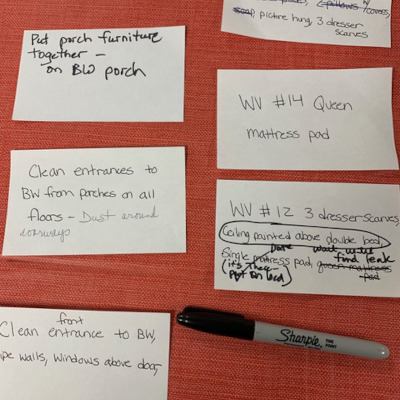 Put porch furniture
together —
on BW porch
soap, picture hung, 3 dresser
scarves
WV #14 Queen
mattress pad
Clean entrances to
BW from porches on all
floors - Dust around
doorways
WV #12 3 dresser scarves,
Ceiling painted above double bed
wait until
find leak
Single mattress pad, queen mattress
pad
(it's there
put on bed)
front
Clean entrance to BW,
pe walls, windows above door,
Sharpie
FINE POINT